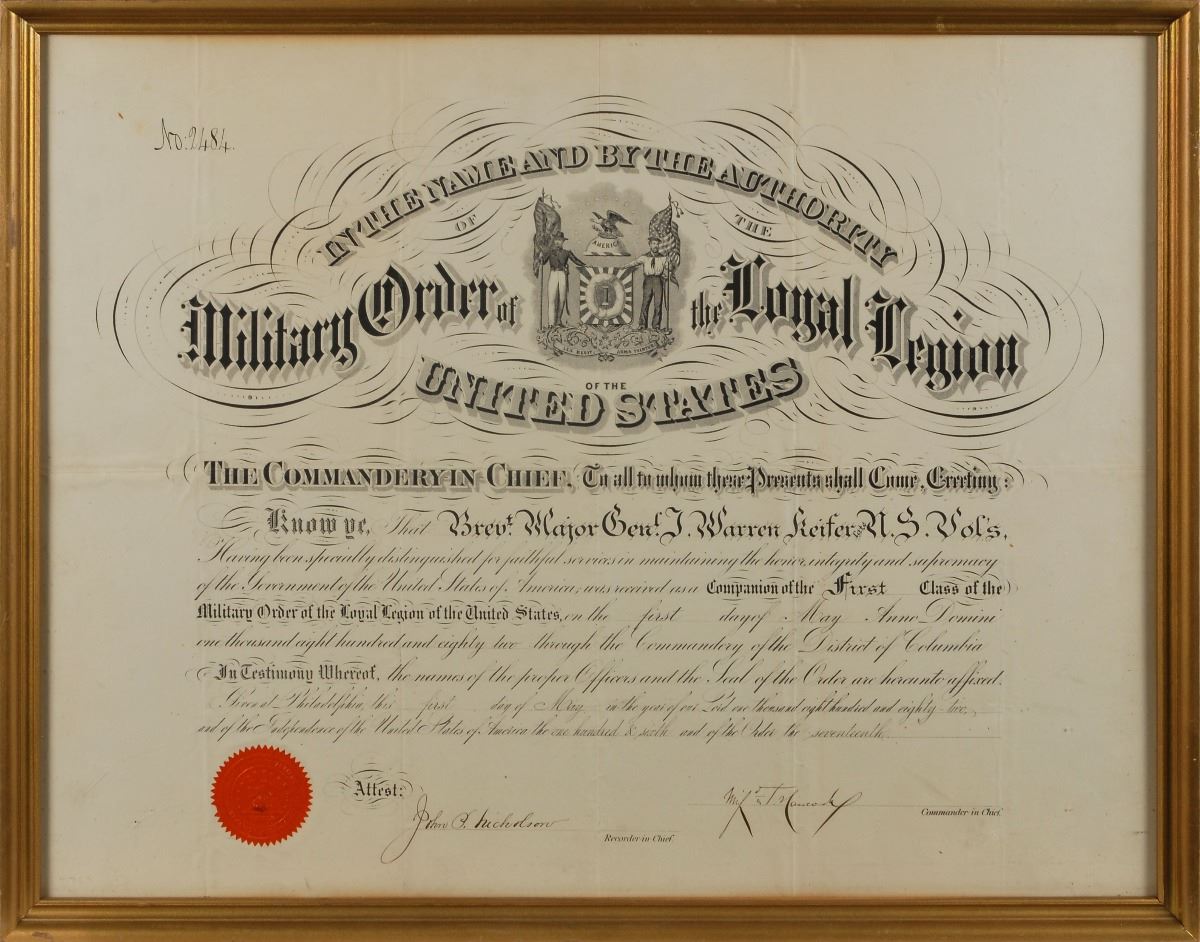 No: 2484.
IN THE NAME AND BY THE AUTHORITY
OF THE
AMERICA
1
Military Order of the Loyal Legion
LEX REGIT ARMA TUENTUR
OF THE
UNITED STATES
THE COMMANDERY IN CHIEF, To all to whom these Presents shall Come, Greeting:
Know ye, That Brevt. Major Genl. J. Warren Keifer U.S. Vol's,
Having been specially distinguished for faithful services in maintaining the honor, integrity and supremacy
of the Government of the United States of America, was received as a Companion of the First Class of the
Military Order of the Loyal Legion of the United States, on the first day of May Anno Domini
one thousand eight hundred and eighty two through the Commandery of the District of Columbia
In Testimony Whereof, the names of the proper Officers and the Seal of the Order are hereunto affixed.
Given at Philadelphia, this first day of May in the year of our Lord one thousand eight hundred and eighty-two,
and of the Independence of the United States of America the one hundred & sixth and of the Order the seventeenth.
Attest:
John P. Nicholson
Recorder in Chief.
Winf'd S. Hancock
Commander in Chief.